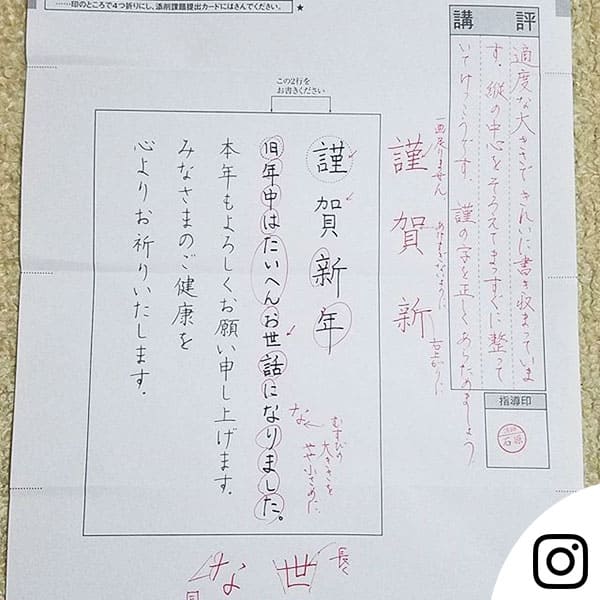 ……印のところで4つ折りにし、添削課題提出カードにはさんでください。
★
講評
適度な大きさできれいに書き収まっていま
す。縦の中心をそろえてまっすぐに整って
いてけっこうです。謹の字を正しくあらためましょう。
指導印
石原
この2行を
お書きください
謹賀新
一画足りません
右上がりに
謹賀新年
旧年中はたいへんお世話になりました。
本年もよろしくお願い申し上げます。
みなさまのご健康を
心よりお祈りいたします。
な
むすびの
大きさを
小さめに
長く
世
な